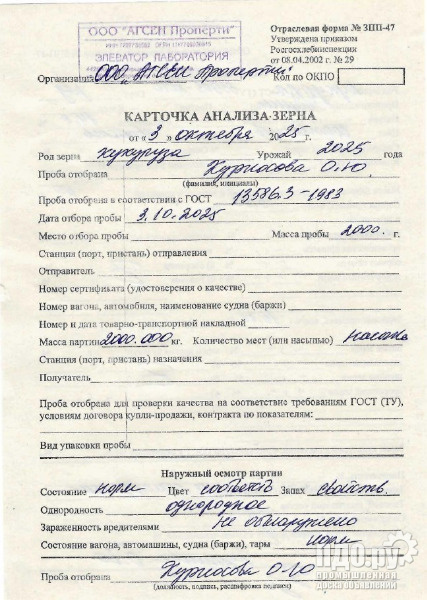 ООО "АГСЕН Проперти"
ЭЛЕВАТОР ЛАБОРАТОРИЯ
Отраслевая форма № ЗПП-47
Утверждена приказом
Росгосхлебинспекции
от 08.04.2002 г. № 29
Организация ООО „АГСЕН Проперти" Код по ОКПО
КАРТОЧКА АНАЛИЗА ЗЕРНА
от « 3 » октября 2025 г.
Род зерна кукуруза Урожай 2025 года
Проба отобрана О.Ю
(фамилия, инициалы)
Проба отобрана в соответствии с ГОСТ 13586.3-1983
Дата отбора пробы 3.10.2025
Место отбора пробы Масса пробы 2000. г.
Станция (порт, пристань) отправления
Отправитель
Номер сертификата (удостоверения о качестве)
Номер вагона, автомобиля, наименование судна (баржи)
Номер и дата товарно-транспортной накладной
Масса партии 2000.000 кг. Количество мест (или насыпью)
Станция (порт, пристань) назначения
Получатель
Проба отобрана для проверки качества на соответствие требованиям ГОСТ (ТУ),
условиям договора купли-продажи, контракта по показателям:
Вид упаковки пробы
Наружный осмотр партии
Состояние норм Цвет Запах свойств.
Однородность однородное
Зараженность вредителями не обнаружено
Состояние вагона, автомашины, судна (баржи), тары норм
Проба отобрана О.Ю
(должность, подпись, расшифровка подписи)
ПДО.ру
промышленная
доска объявлений